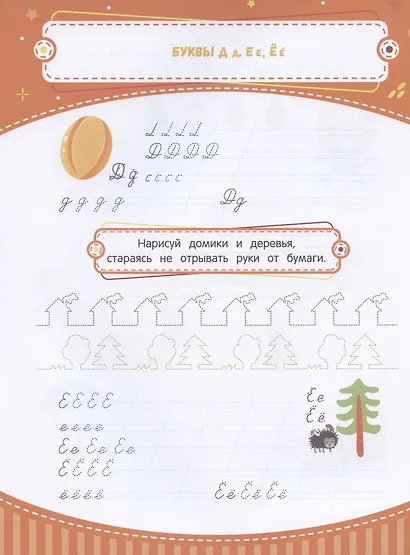 БУКВЫ Д д, Е е, Ё ё
Д Д Д Д
Д д с с с с
д д д д Дд
Нарисуй домики и деревья,
стараясь не отрывать руки от бумаги.
Е Е Е Е
Ее
е е е е
Ёё
Ее Ее Ее
Ё Ё Ё Ё
ё ё ё ё Ёё Ёё Ёё